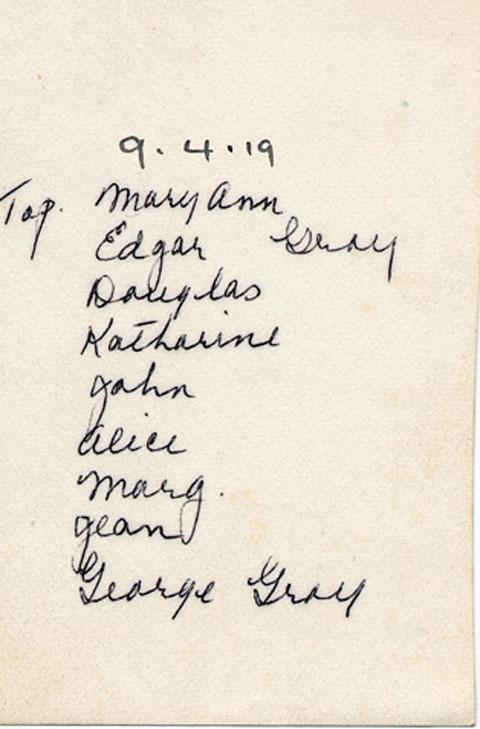 9.4.19
Top. Mary Ann
Edgar Gray
Douglas
Katharine
John
Alice
Marg.
Jean
George Gray